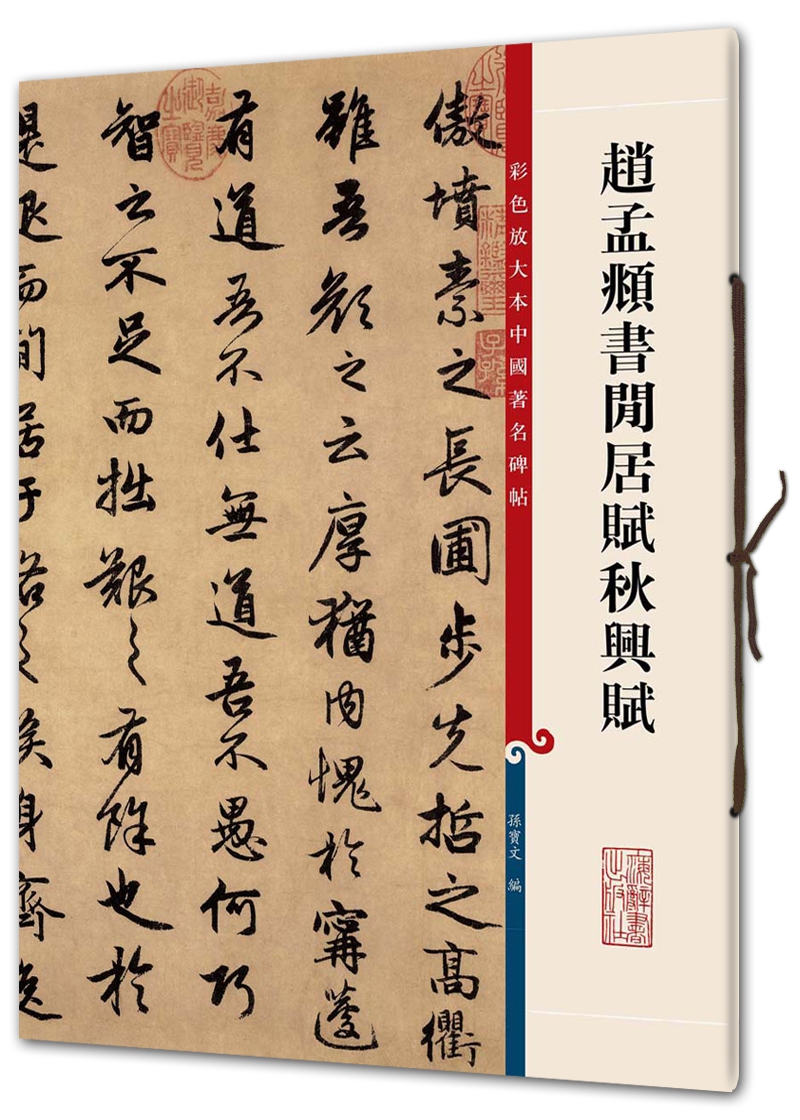 趙孟頫書閒居賦秋興賦
上海辭書出版社
彩色放大本中國著名碑帖
孫寶文 編
傲墳素之長圃步先哲之高衢
雖吾顏之云厚猶內愧於甯蘧
有道吾不仕無道吾不愚何巧
智之不足而拙艱之有餘也於
是退而閒居于洛之涘身齊逸
嘉慶御覽之寶